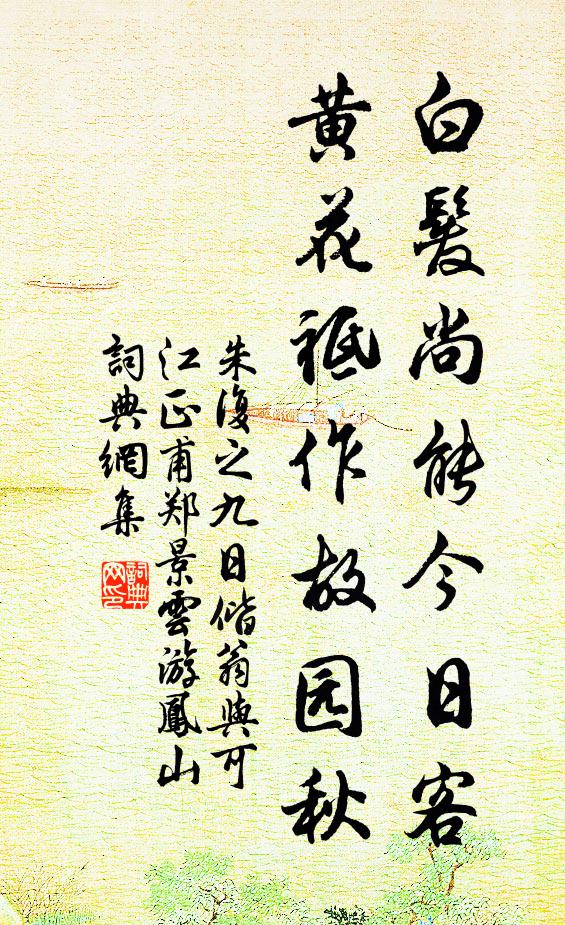 白髮尚能今日客
黄花祗作故园秋
朱復之九日偕翁與可
江正甫郑景雲游鳳山
詞典網集
詞典
网印